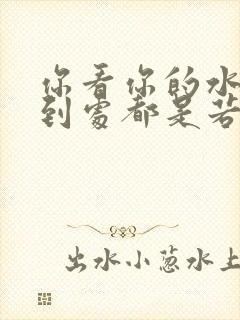 你看你的水
到處都是若
出水小葱水上